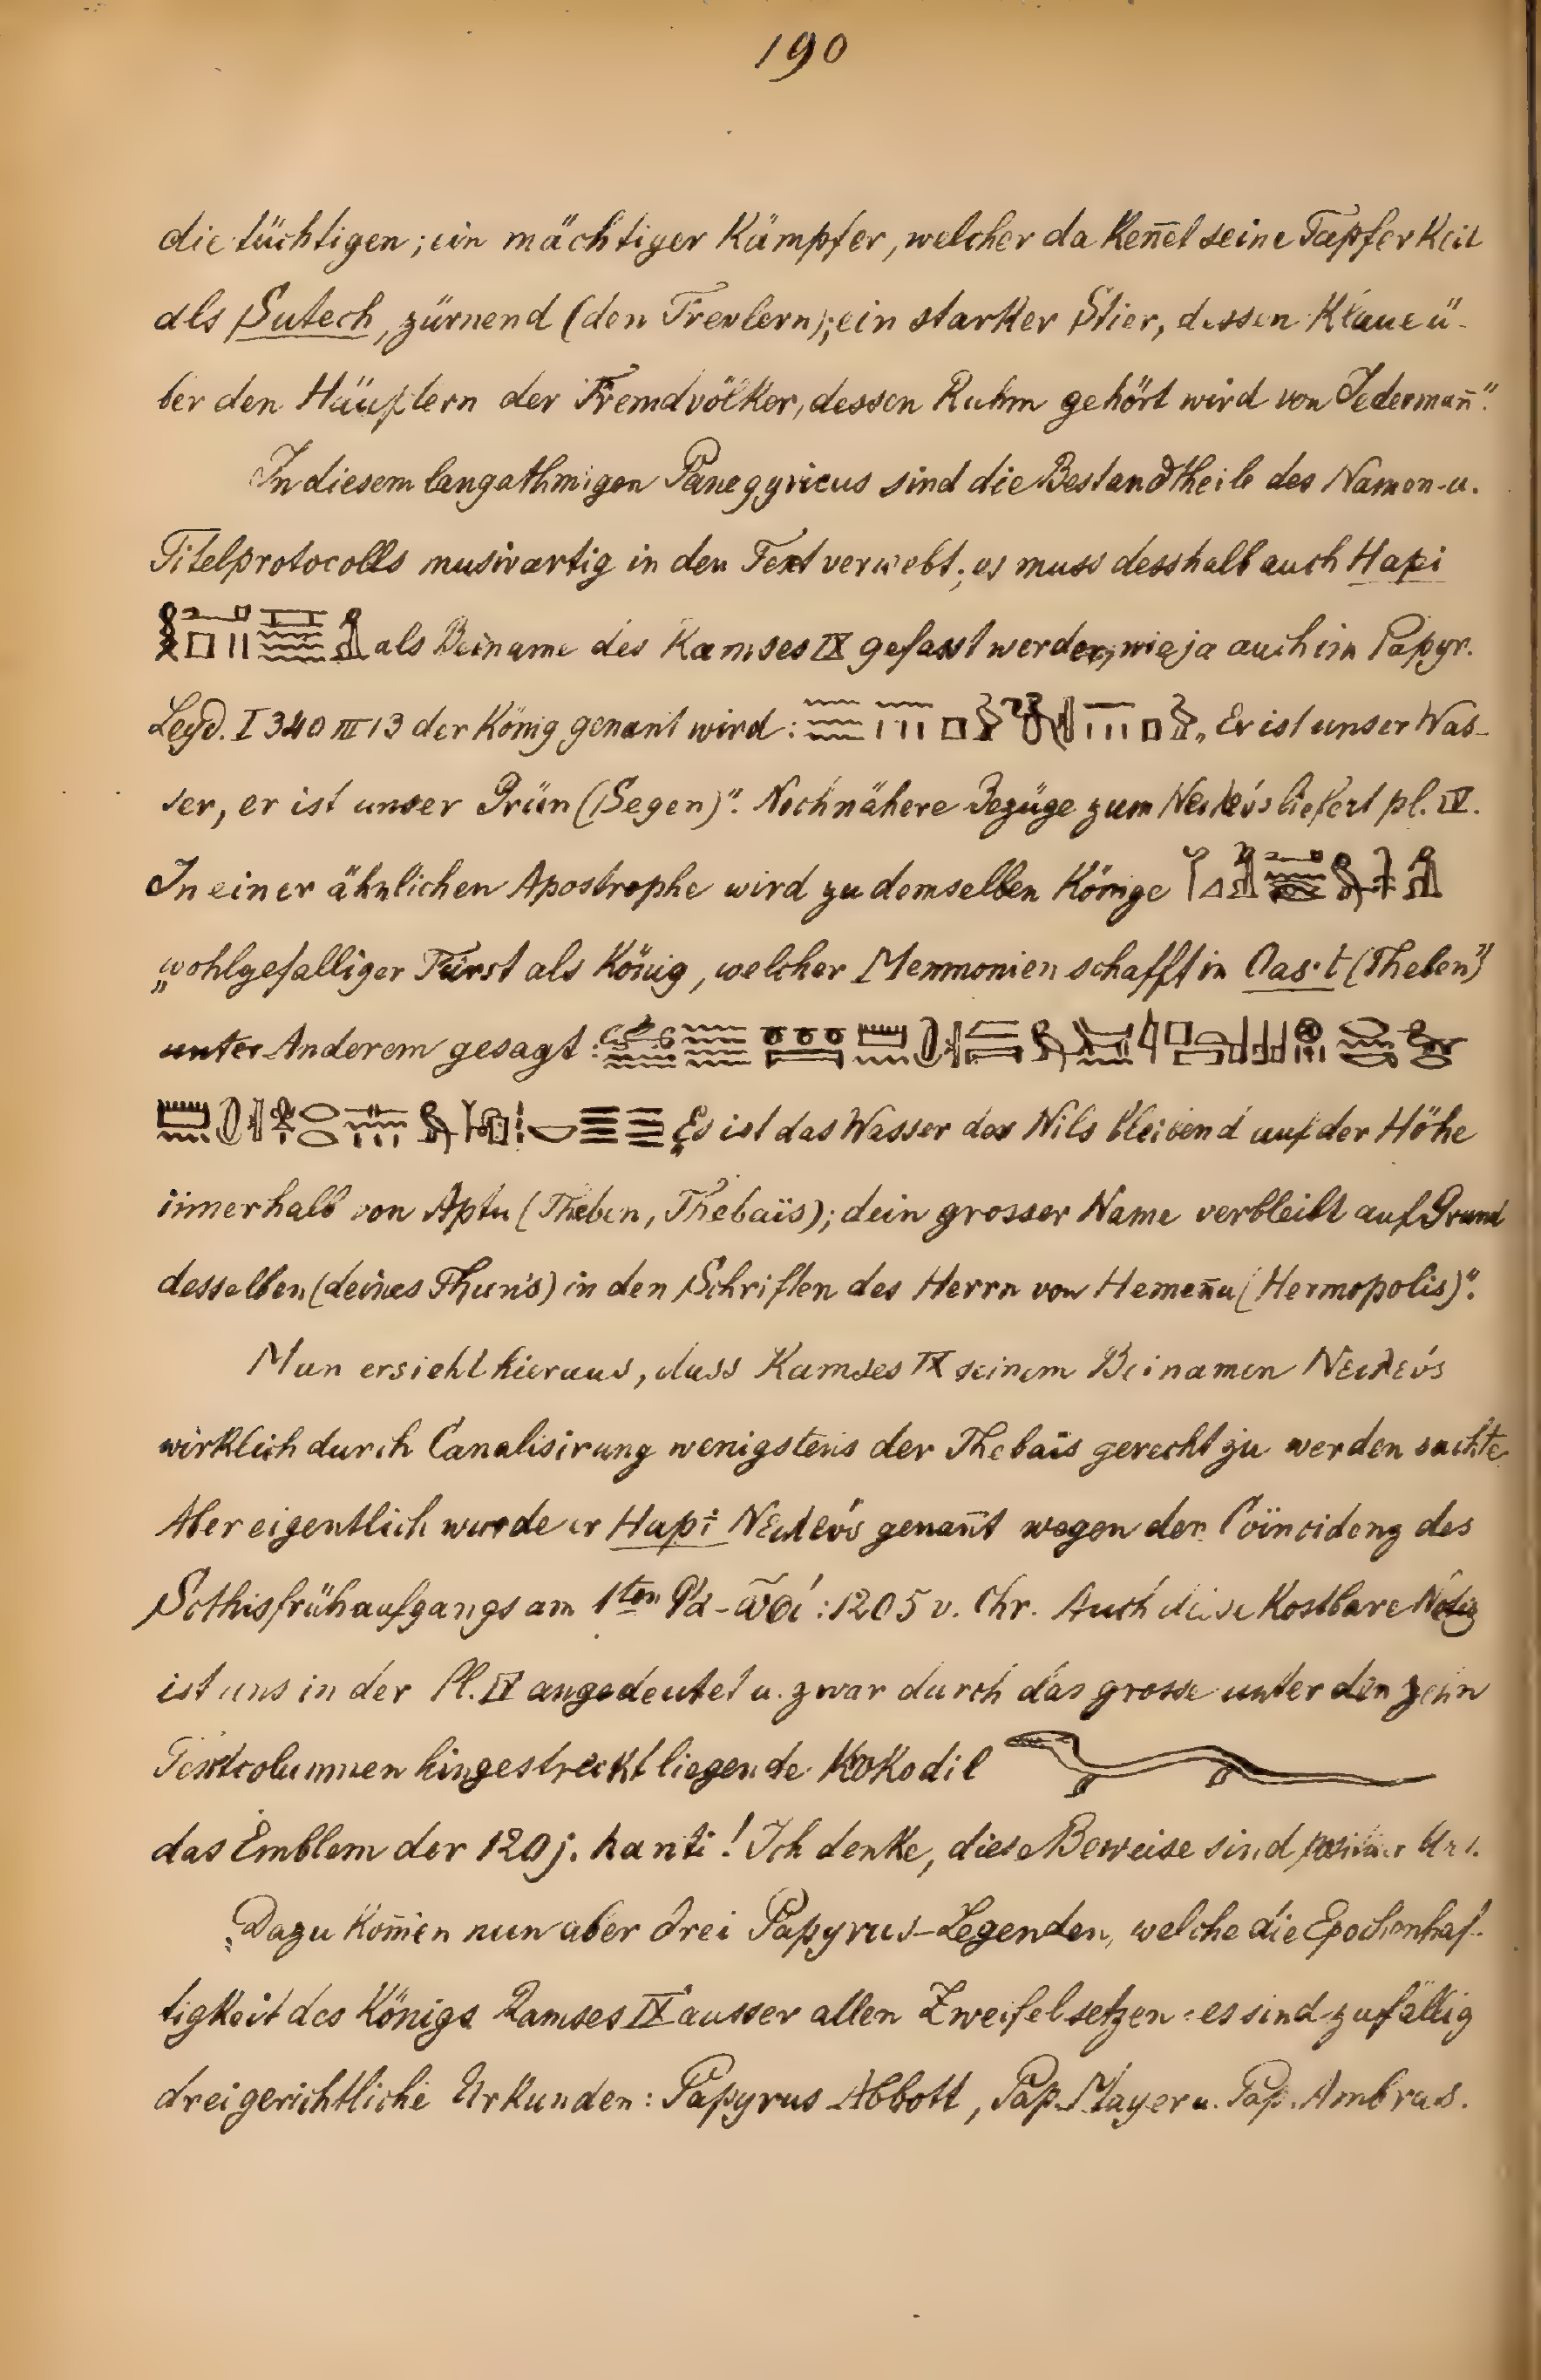 190
die tüchtigen; ein mächtiger Kämpfer, welcher da ken̄et seine Tapferkeit
als Sutech, zürnend (den Frevlern); ein starker Stier, dessen Klaue ü-
ber den Häuptern der Fremdvölker, dessen Ruhm gehört wird von Jederman̄“.
In diesem langathmigen Panegyricus sind die Bestandtheile des Namen- u.
Titelprotocolls musivartig in den Text verwebt; es muss desshalb auch Hapi
als Beiname des Ramses IX gefasst werden, wie ja auch im Papyr.
Leyd. I 340 III 13 der König genant wird: „Er ist unser Was-
ser, er ist unser Grün (Segen)“. Noch nähere Bezüge zum Νειλεύς liefert pl. IV.
In einer ähnlichen Apostrophe wird zu demselben Könige
„wohlgefalliger Fürst als König, welcher Memnonien schafft in Oas.t (Theben“)
unter Anderem gesagt:
„Es ist das Wasser des Nils bleibend auf der Höhe
innerhalb von Aptu (Theben, Thebaïs); dein grosser Name verbleibt auf Grund
desselben (deines Thun's) in den Schriften des Herrn von Hemen̄u (Hermopolis)“.
Man ersieht hieraus, dass Ramses IX seinem Beinamen Νειλεύς
wirklich durch Canalisirung wenigstens der Thebais gerecht zu werden suchte.
Aber eigentlich wurde er Hapi Νειλεύς genan̄t wegen der Coïncidenz des
Sothisfrühaufgangs am 1ten : 1205 v. Chr. Auch diese kostbare Notiz
ist uns in der Pl. IV angedeutet u. zwar durch das grosse unter den zehn
Textcolumnen hingestreckt liegende Krokodil
das Emblem der 120 j. hanti! Ich denke, diese Beweise sind positiver Art.
Dazu kom̄en nun aber drei Papyrus-Legenden, welche die Epochenhaf-
tigkeit des Königs Ramses IX ausser allen Zweifel setzen: es sind zufällig
drei gerichtliche Urkunden: Papyrus Abbott, Pap. Mayer u. Pap. Ambras.